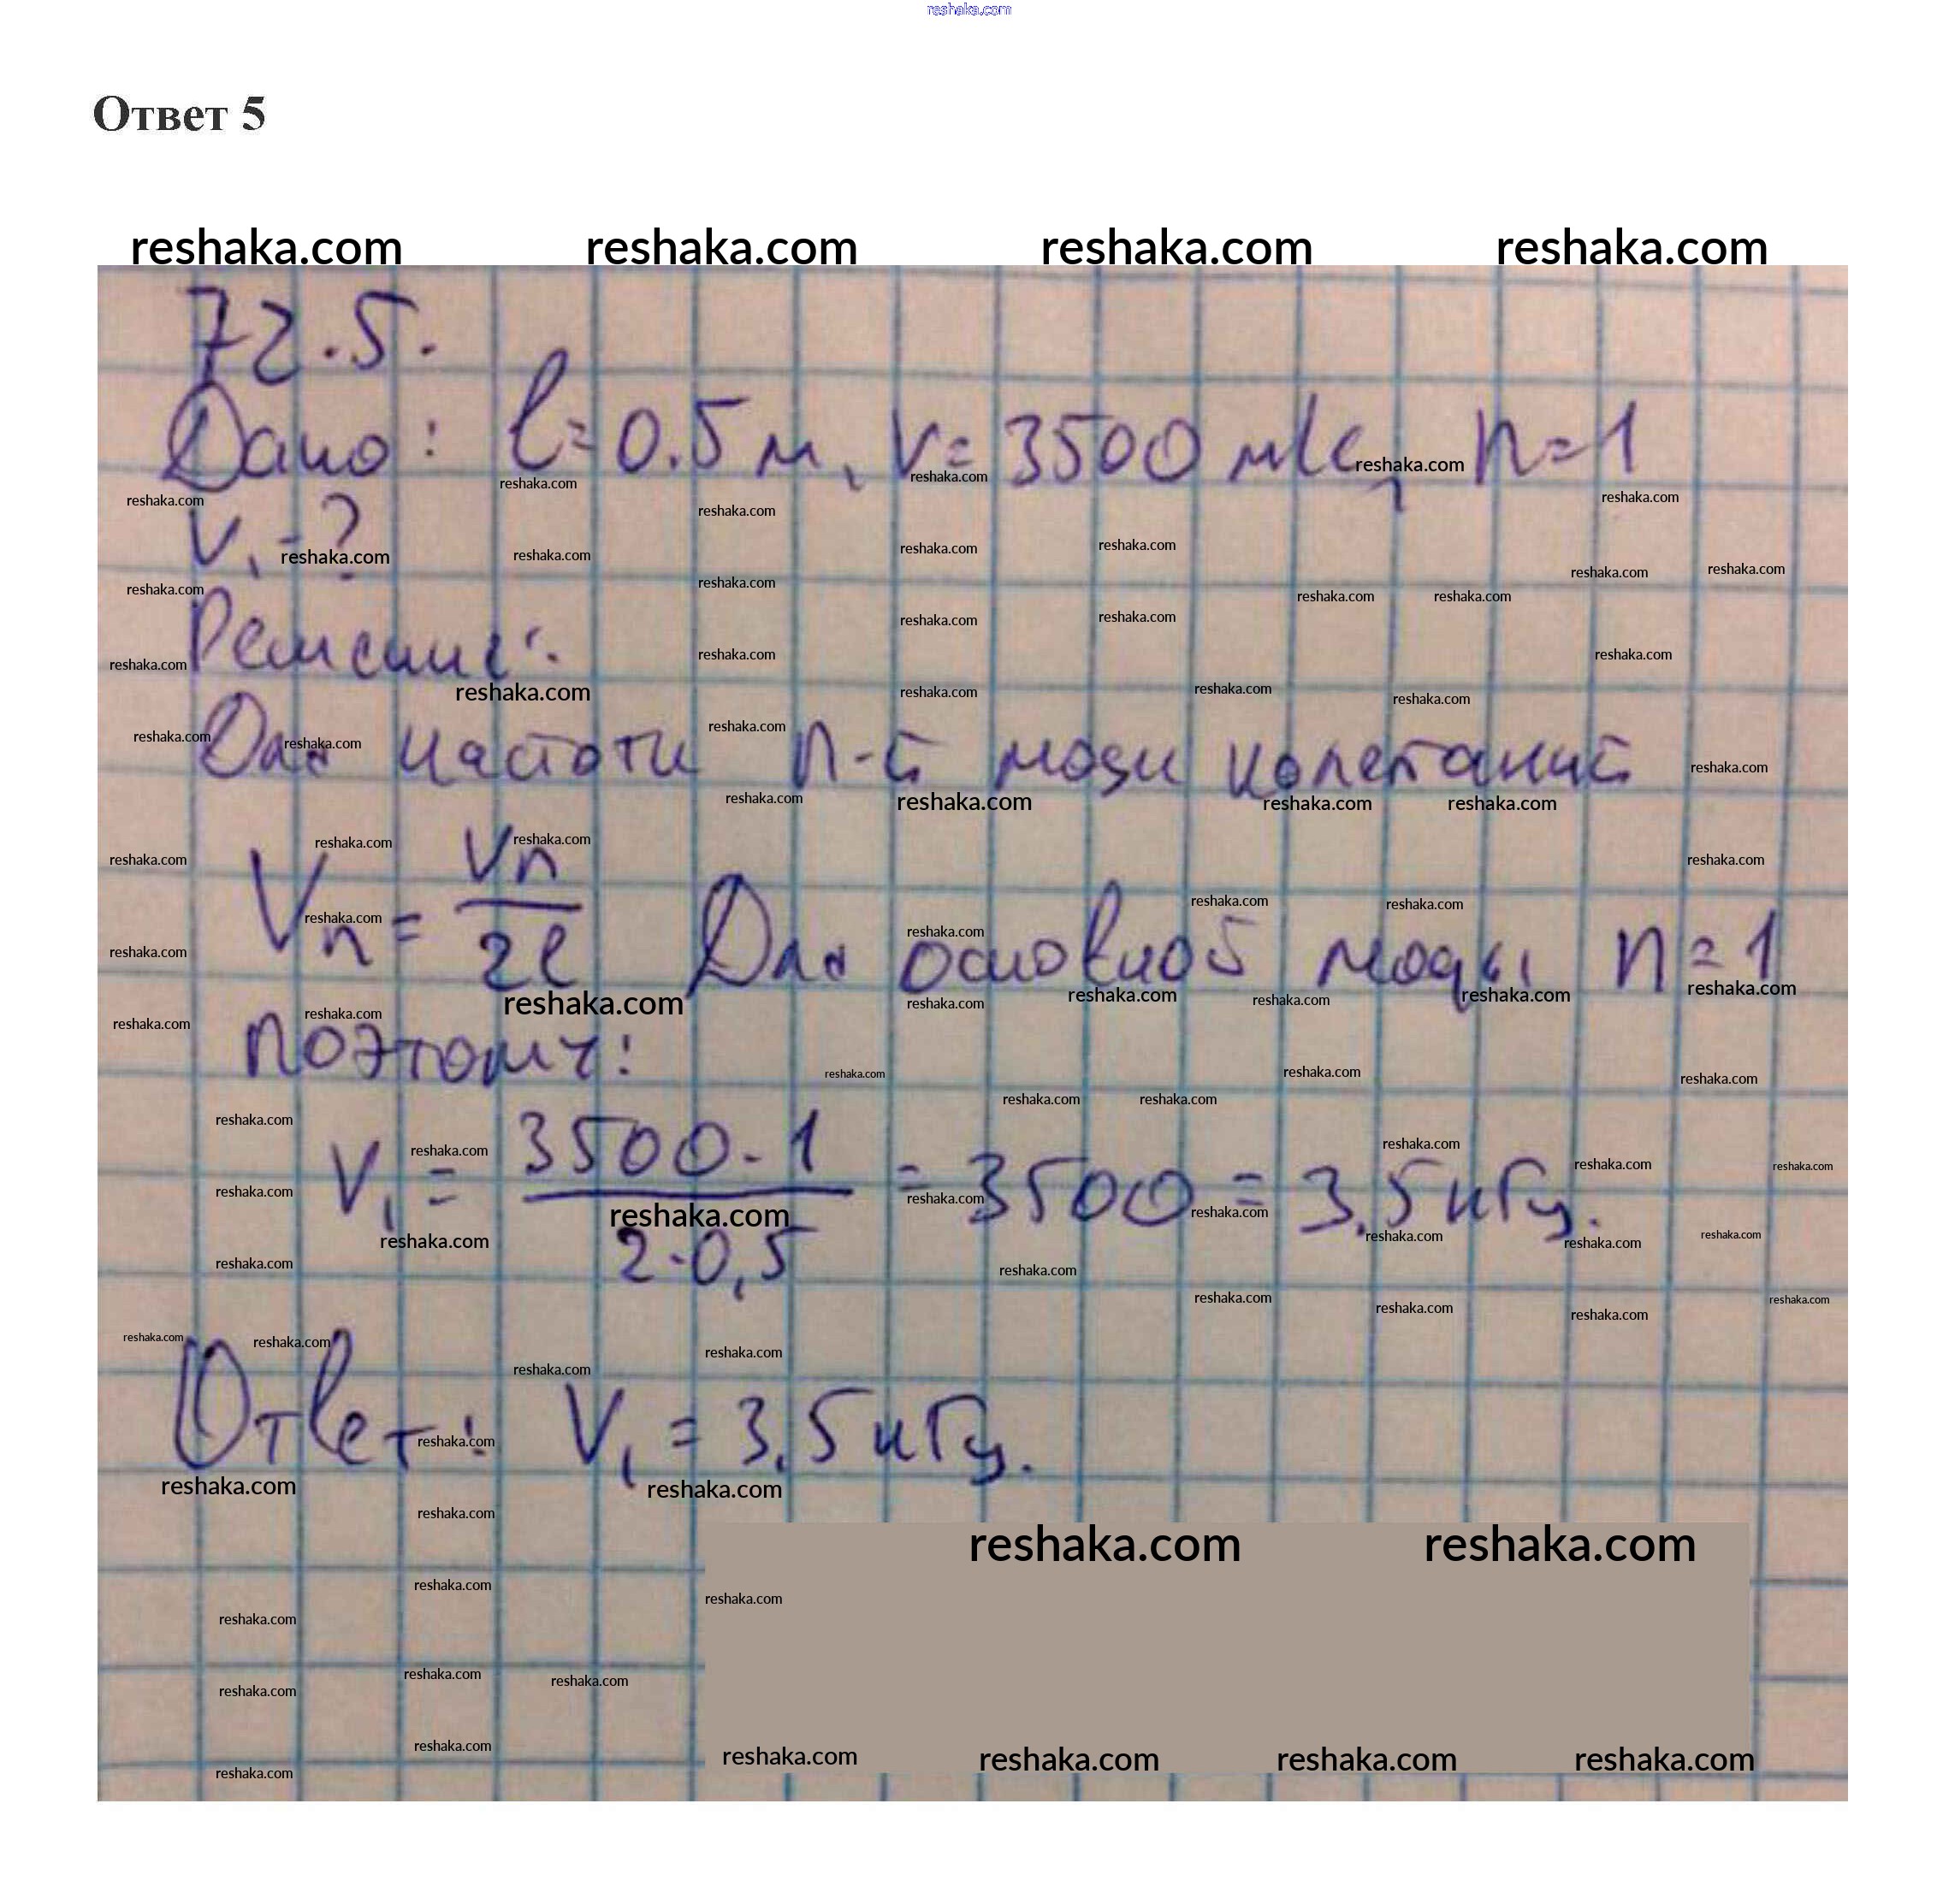 reshaka.com
Ответ 5
reshaka.com reshaka.com reshaka.com reshaka.com
72.5.
Дано: l=0.5 м, v=3500 м/с, n=1
v₁-?
Решение:
Для частоты n-й моды колебаний
Vn = vn/2l Для основной моды n=1
поэтому:
V₁ = 3500·1/2·0,5 = 3500 = 3,5 кГц.
Ответ: V₁ = 3,5 кГц.
reshaka.com reshaka.com
reshaka.com reshaka.com reshaka.com reshaka.com